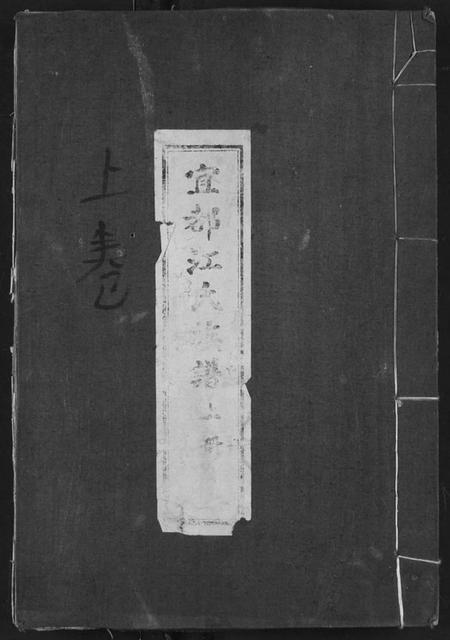 宜都江氏族譜上冊
上卷